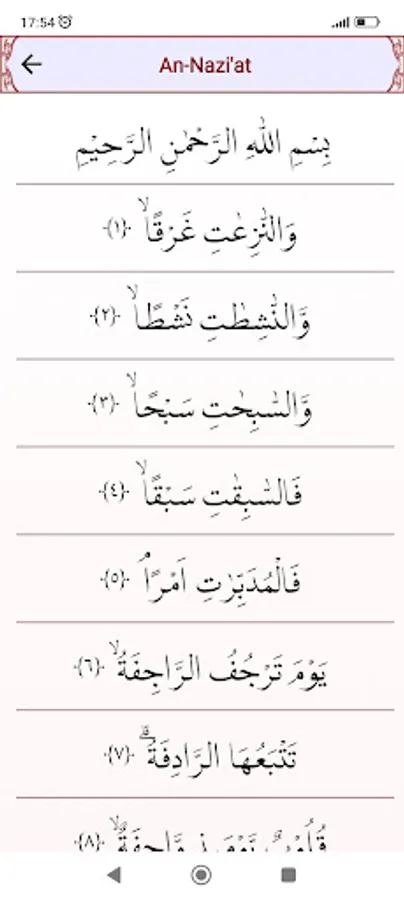 17:54
An-Nazi'at
بِسْمِ اللّٰهِ الرَّحْمٰنِ الرَّحِيْمِ
وَالنّٰزِعٰتِ غَرْقًاۙ ﴿١﴾
وَّالنّٰشِطٰتِ نَشْطًاۙ ﴿٢﴾
وَّالسّٰبِحٰتِ سَبْحًاۙ ﴿٣﴾
فَالسّٰبِقٰتِ سَبْقًاۙ ﴿٤﴾
فَالْمُدَبِّرٰتِ اَمْرًاۘ ﴿٥﴾
يَوْمَ تَرْجُفُ الرَّاجِفَةُۙ ﴿٦﴾
تَتْبَعُهَا الرَّادِفَةُۗ ﴿٧﴾
قُلُوْبٌ يَّوْمَىِٕذٍ وَّاجِفَةٌۙ ﴿٨﴾